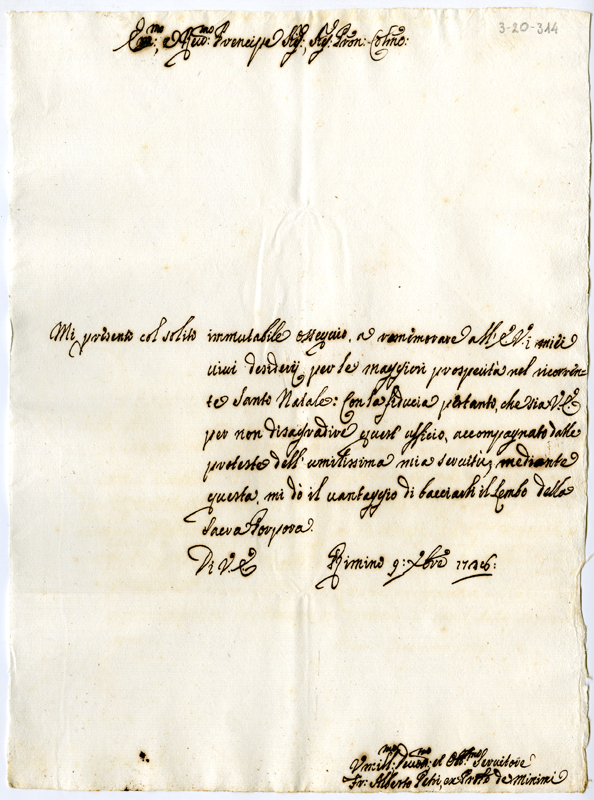 3-20-314
Em:mo, e Rev:mo Prencipe Sig:, Sig: Pron: Colmo:
Mi presento col solito immutabile ossequio, a rammemorare all' E.V. i miei
vivi desiderij per le maggiori prosperità nel ricorren=
te Santo Natale: Con la fiducia pertanto, che sia V.E.
per non disagradire quest' ufficio, accompagnato dalle
proteste dell' umilissima mia servitù, mediante
questa, mi dò il vantaggio di bacciarli il Lembo della
Sacra Porpora.
Di V.E. Rimino 9: Xbre
Umill:mo Devot:mo et Obb:mo Servitore
Fr: Alberto Petri, ex de Minimi